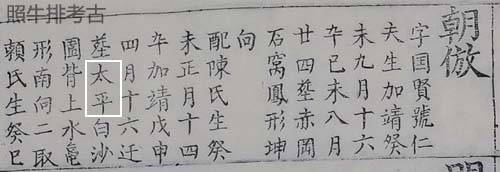 照牛排考古
朝倣
字国賢號仁
夫生加靖癸
未九月十六
卒已未八月
廿四塟赤岡
石窝鳳形坤
向
配陳氏生癸
未正月十四
卒加靖戊申
四月十六迁
塟太平白沙
背上水
形南向二取
頼氏生癸巳